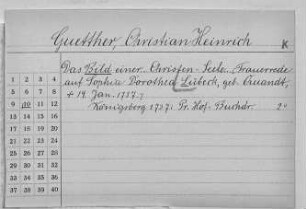 Guetther, Christian Heinrich K
Das Bild einer Christen-Seele. Trauerrede
auf Sophia Dorothea Lübeck, geb. Quandt,
+ 19. Jan. 1737.
Königsberg 1737: Pr. Hof-Buchdr. 2°
1 2 3 4
5 6 7 8
9 10 11 12
13 14 15 16
17 18 19 20
21 22 23 24
25 26 27 28
29 30 31 32
33 34 35 36
37 38 39 40